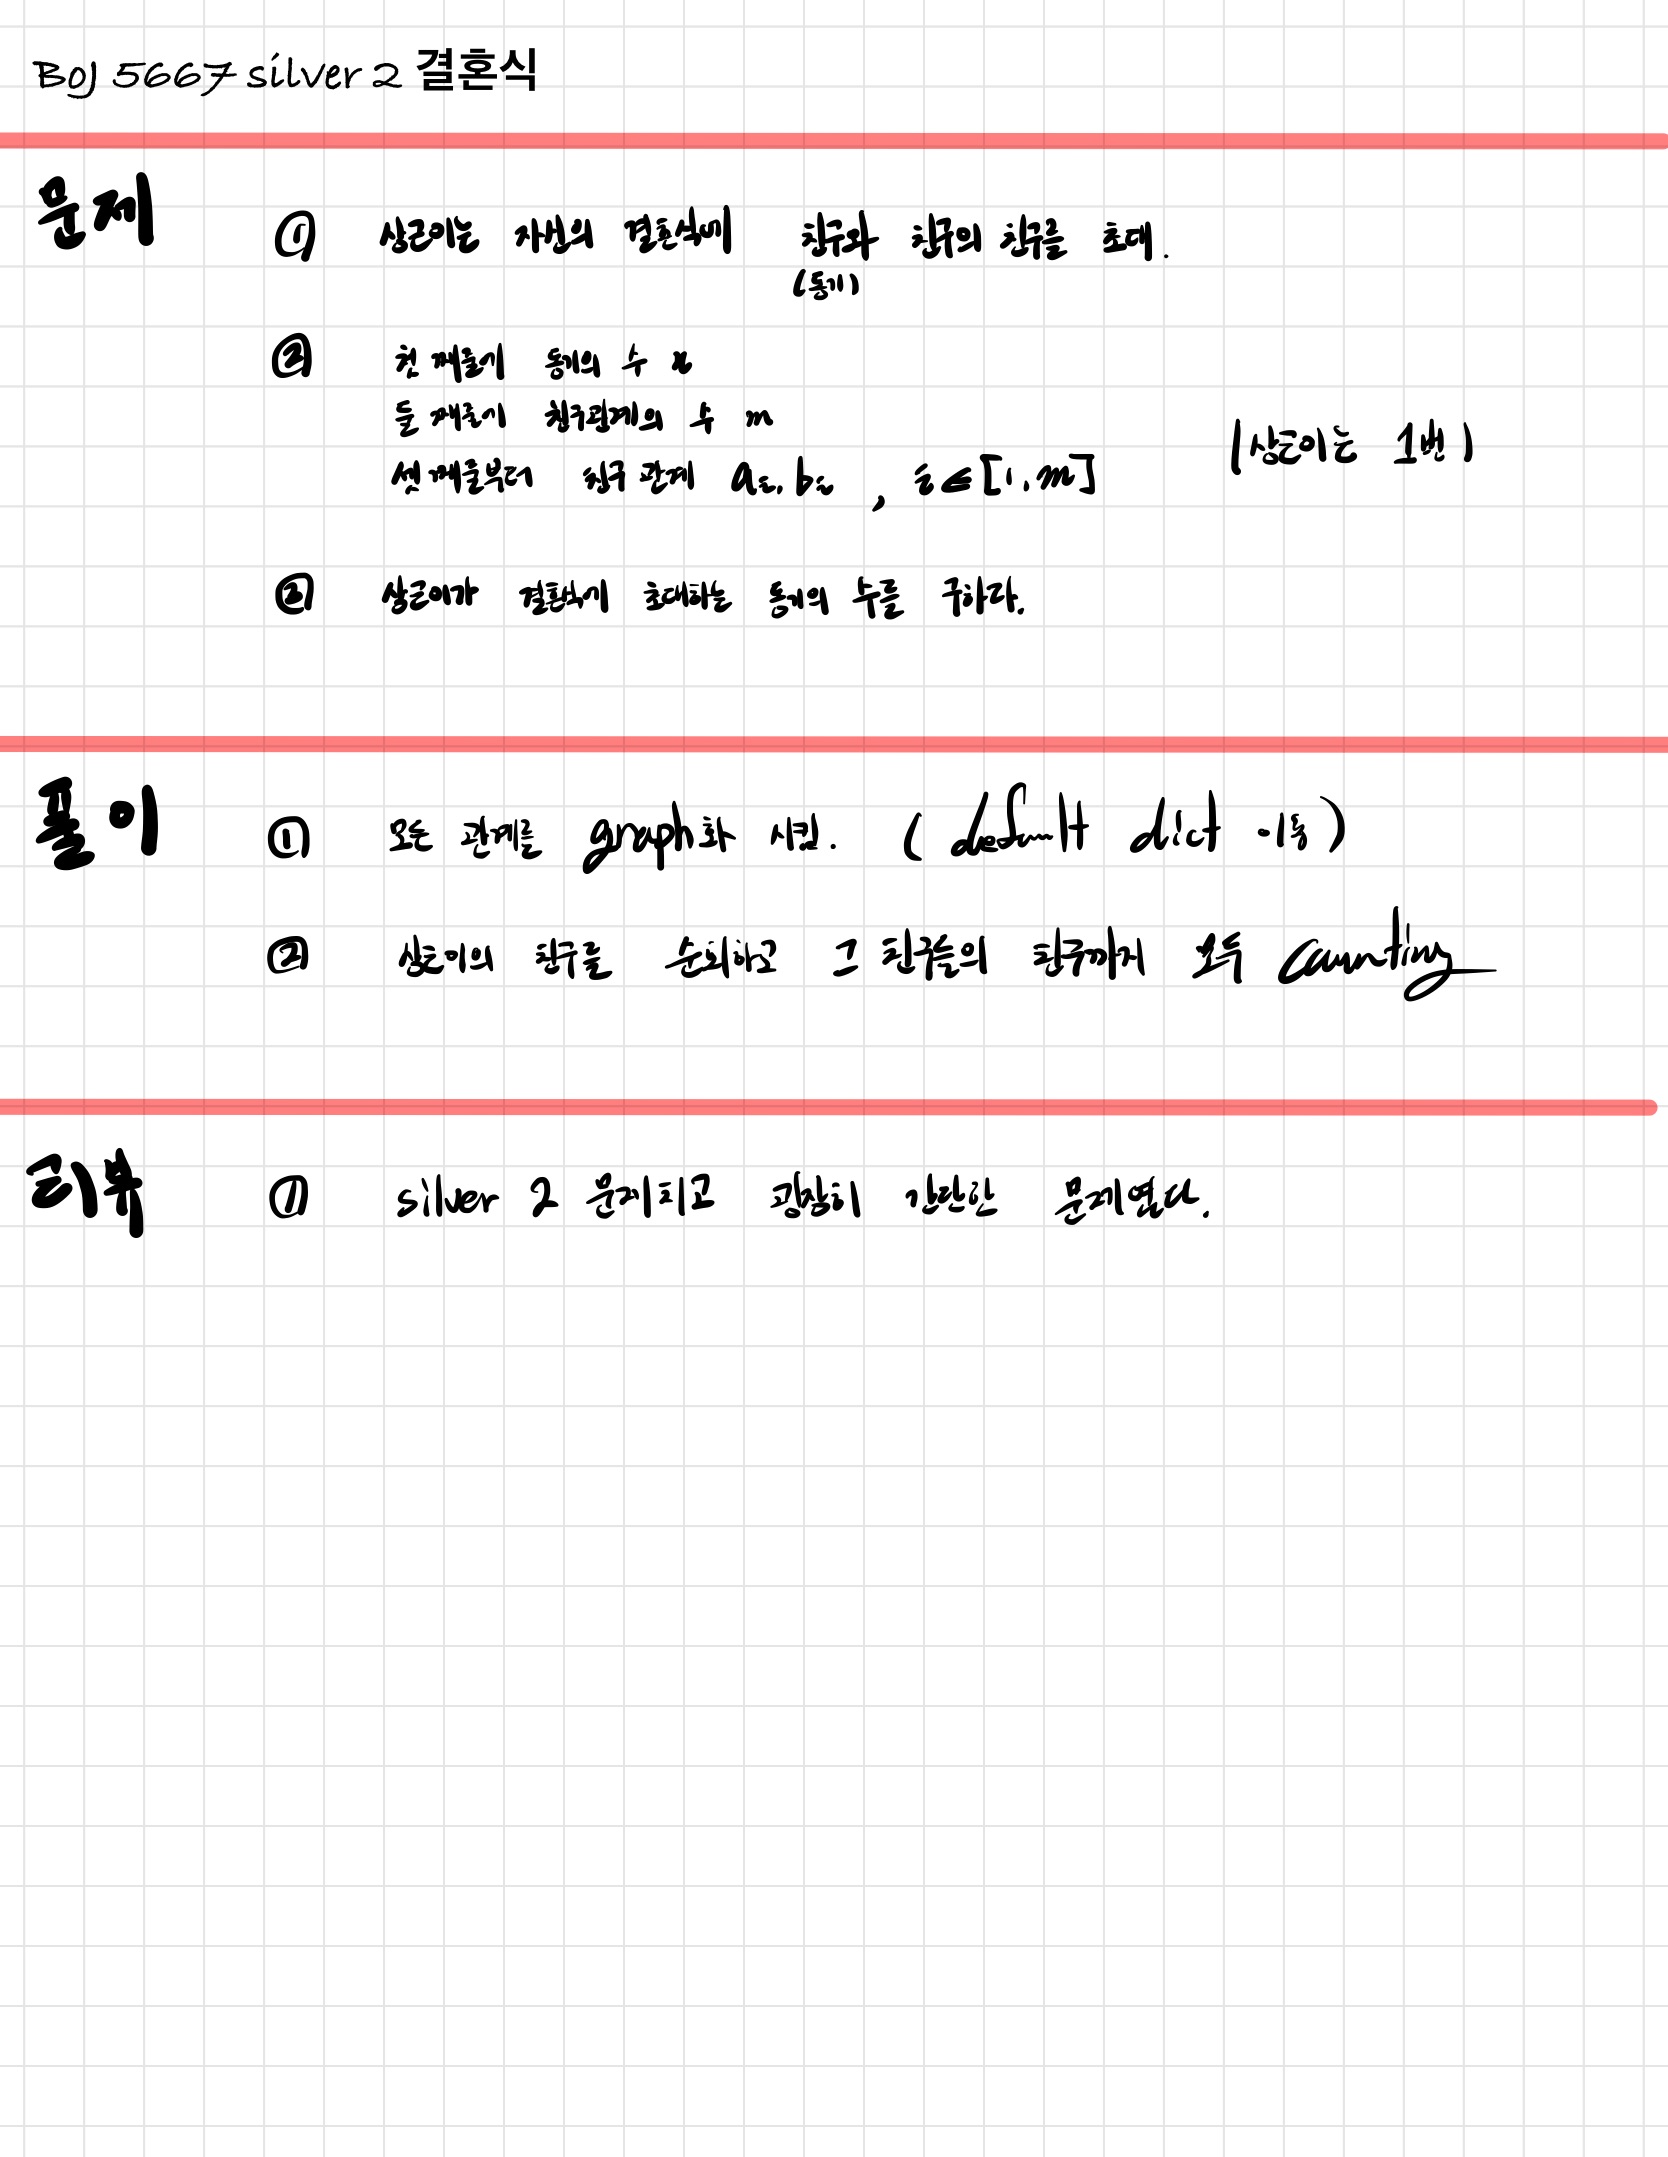 BOJ 5667 silver 2 결혼식
문제
① 상근이는 자신의 결혼식에 친구와 친구의 친구를 초대.
(동기)
② 첫 째줄에 동기의 수 n
둘 째줄에 친구관계의 수 m
(상근이는 1번)
셋 째줄부터 친구 관계 ai, bi , i ∈ [1, m]
③ 상근이가 결혼식에 초대하는 동기의 수를 구하라.
풀이
① 모든 관계를 graph화 시킴. ( default dict 이용 )
② 상근이의 친구를 순회하고 그 친구들의 친구까지 모두 counting
리뷰
① silver 2 문제치고 굉장히 간단한 문제였다.